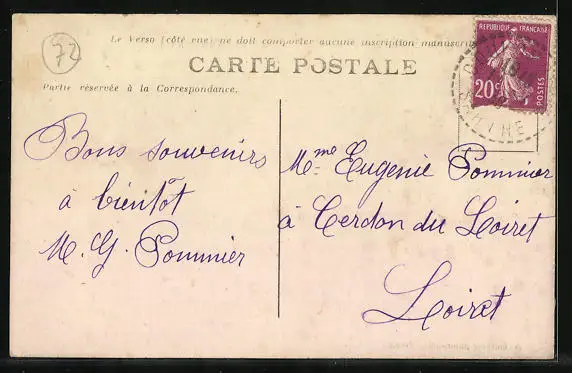 72
Le Verso (côté vue) ne doit comporter aucune inscription manuscri
CARTE POSTALE
Partie réservée à la Correspondance.
REPUBLIQUE FRANÇAISE
20c
POSTES
Bons souvenirs
à bientôt
M. G. Pommier
Mme Eugenie Pommier
à Cerdon du Loiret
Loiret